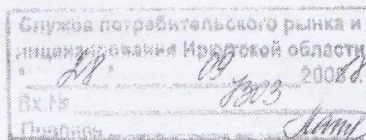 Служба потребительского рынка и
лицензирования Иркутской области
" 28 " 09 2008 г.
Вх.№ 7303
Подпись